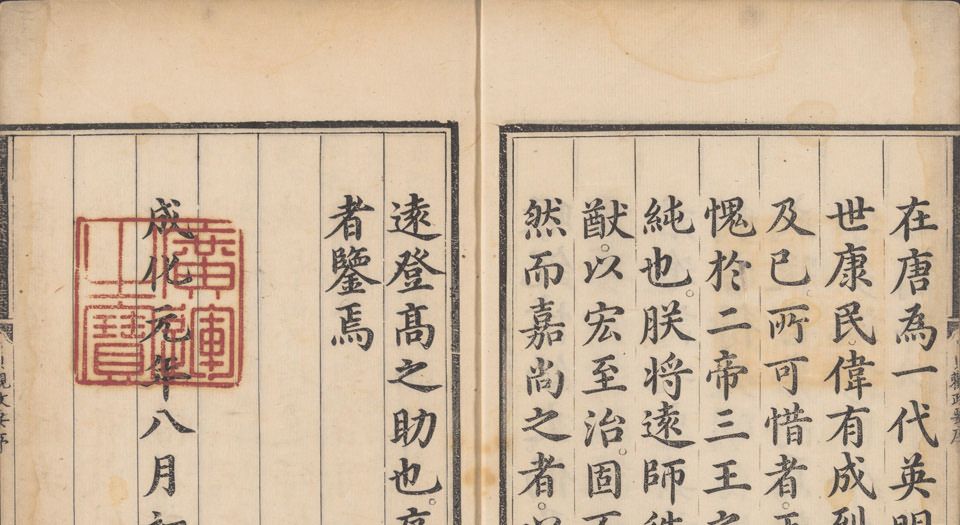 在唐為一代英明
世康民偉有成烈
及已。所可惜者。
愧於二帝三王之
純也。朕將遠師往
猷。以宏至治。固不
然而嘉尚之者。以
遠登髙之助也。序
者鑒焉
成化元年八月初
廣運之寶